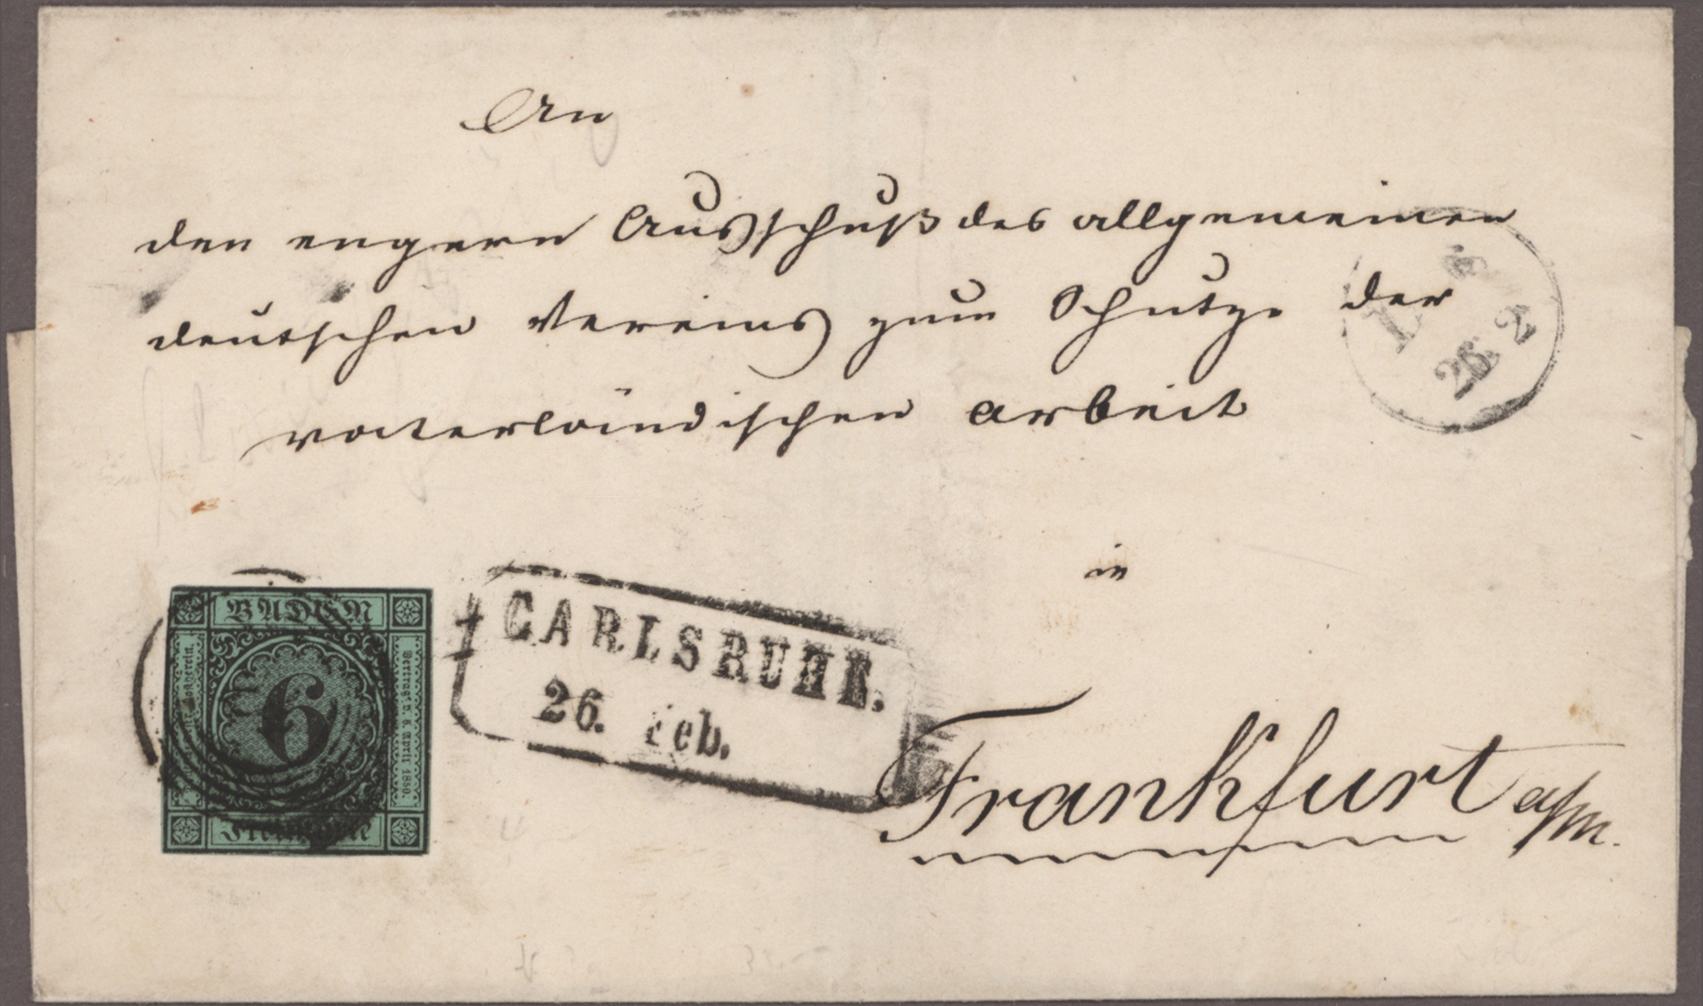 An
den engern Ausschuß des allgemeinen
deutschen Vereins zum Schutze der
vaterländischen Arbeit
26 2
in
BADEN
6
Freimarke
CARLSRUHE.
26. Feb.
Frankfurt a/m.